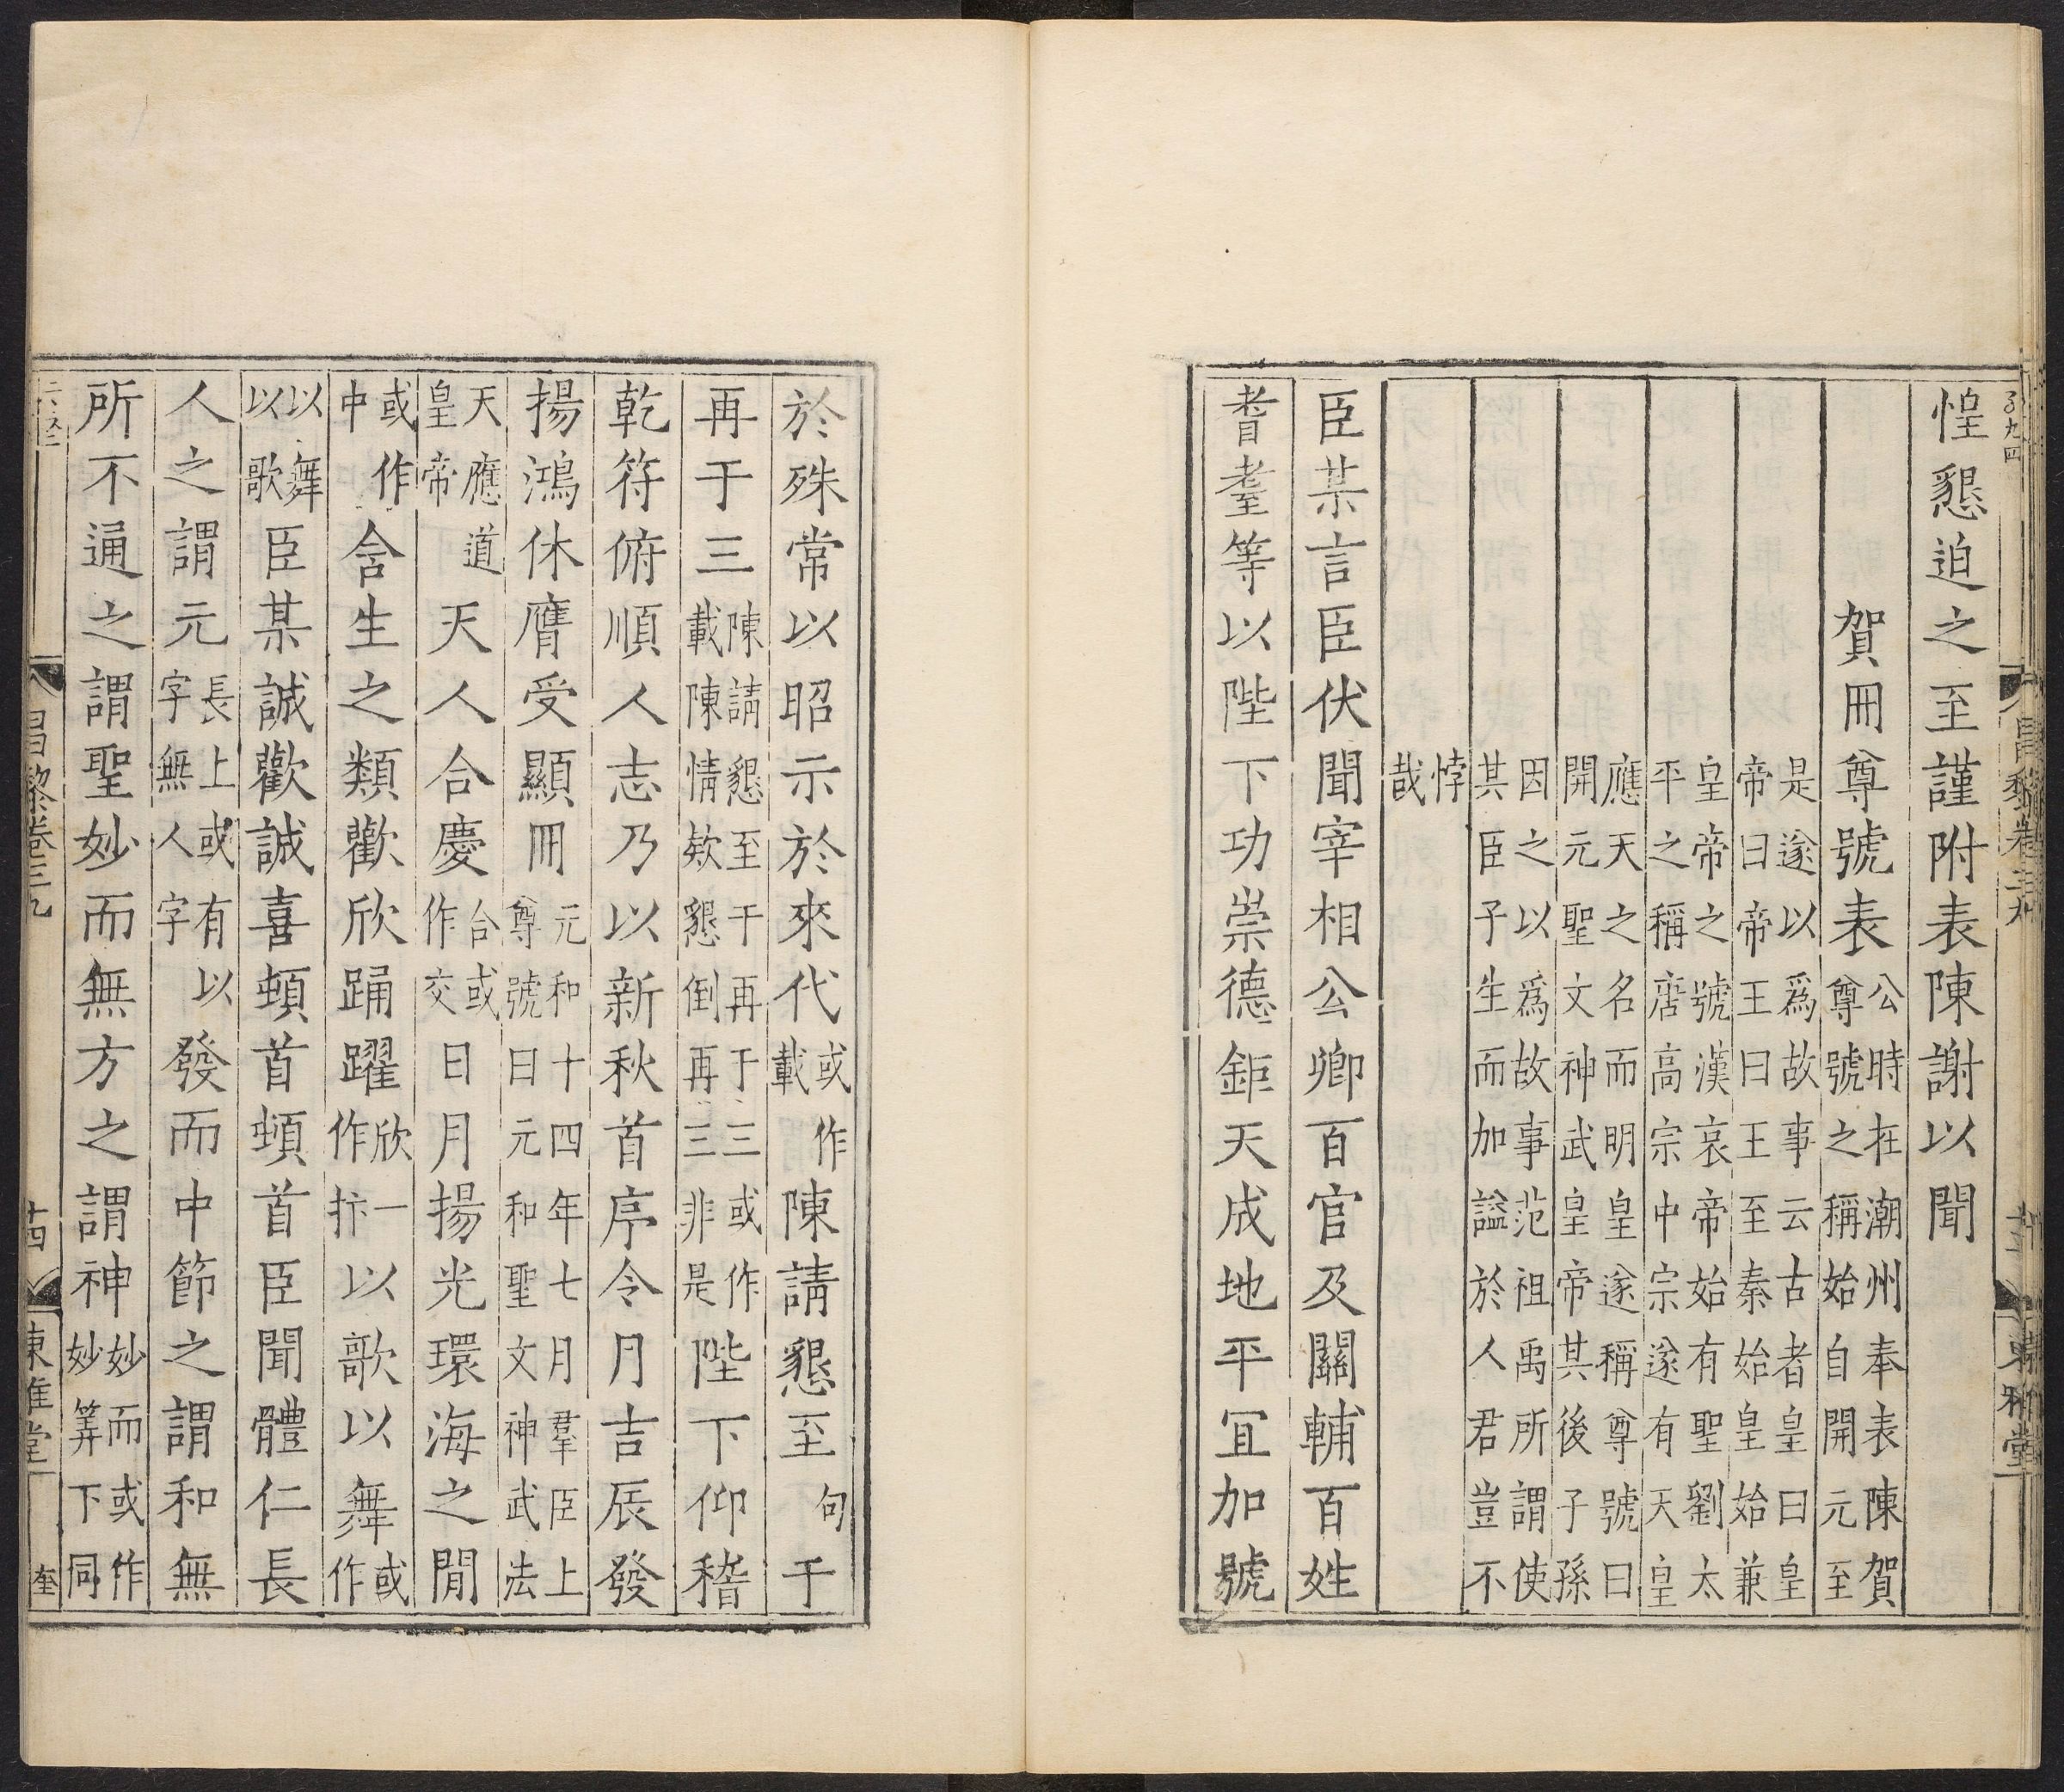 惶懇迫之至謹附表陳謝以聞
賀冊尊號表公時在潮州奉表陳賀
尊號之稱始自開元至
是遂以為故事云古者皇曰皇
帝曰帝王曰王至秦始皇始兼
皇帝之號漢哀帝始有聖劉太
平之稱唐高宗中宗遂有天皇
應天之名而明皇遂稱尊號曰
開元聖文神武皇帝其後子孫
因之以爲故事范祖禹所謂使
其臣子生而加謚於人君豈不
悖
哉
臣某言臣伏聞宰相公卿百官及關輔百姓
耆耋等以陛下功崇德鉅天成地平宜加號
於殊常以昭示於來代或作
載陳請懇至句于
再于三陳請懇至于再于三或作
載陳情欵懇倒再三非是陛下仰稽
乾符俯順人志乃以新秋首序令月吉辰發
揚鴻休膺受顯冊元和十四年七月羣臣上
尊號曰元和聖文神武法
天應道
皇帝天人合慶合或
作交日月揚光環海之閒
或作
中含生之類歡欣踊躍欣一
作抃以歌以舞或
作
以舞
以歌臣某誠歡誠喜頓首頓首臣聞體仁長
人之謂元長上或有以
字無人字發而中節之謂和無
所不通之謂聖妙而無方之謂神妙而或作
妙筭下同
昌黎卷三九
十四
東雅堂
昌黎卷三九
東雅堂